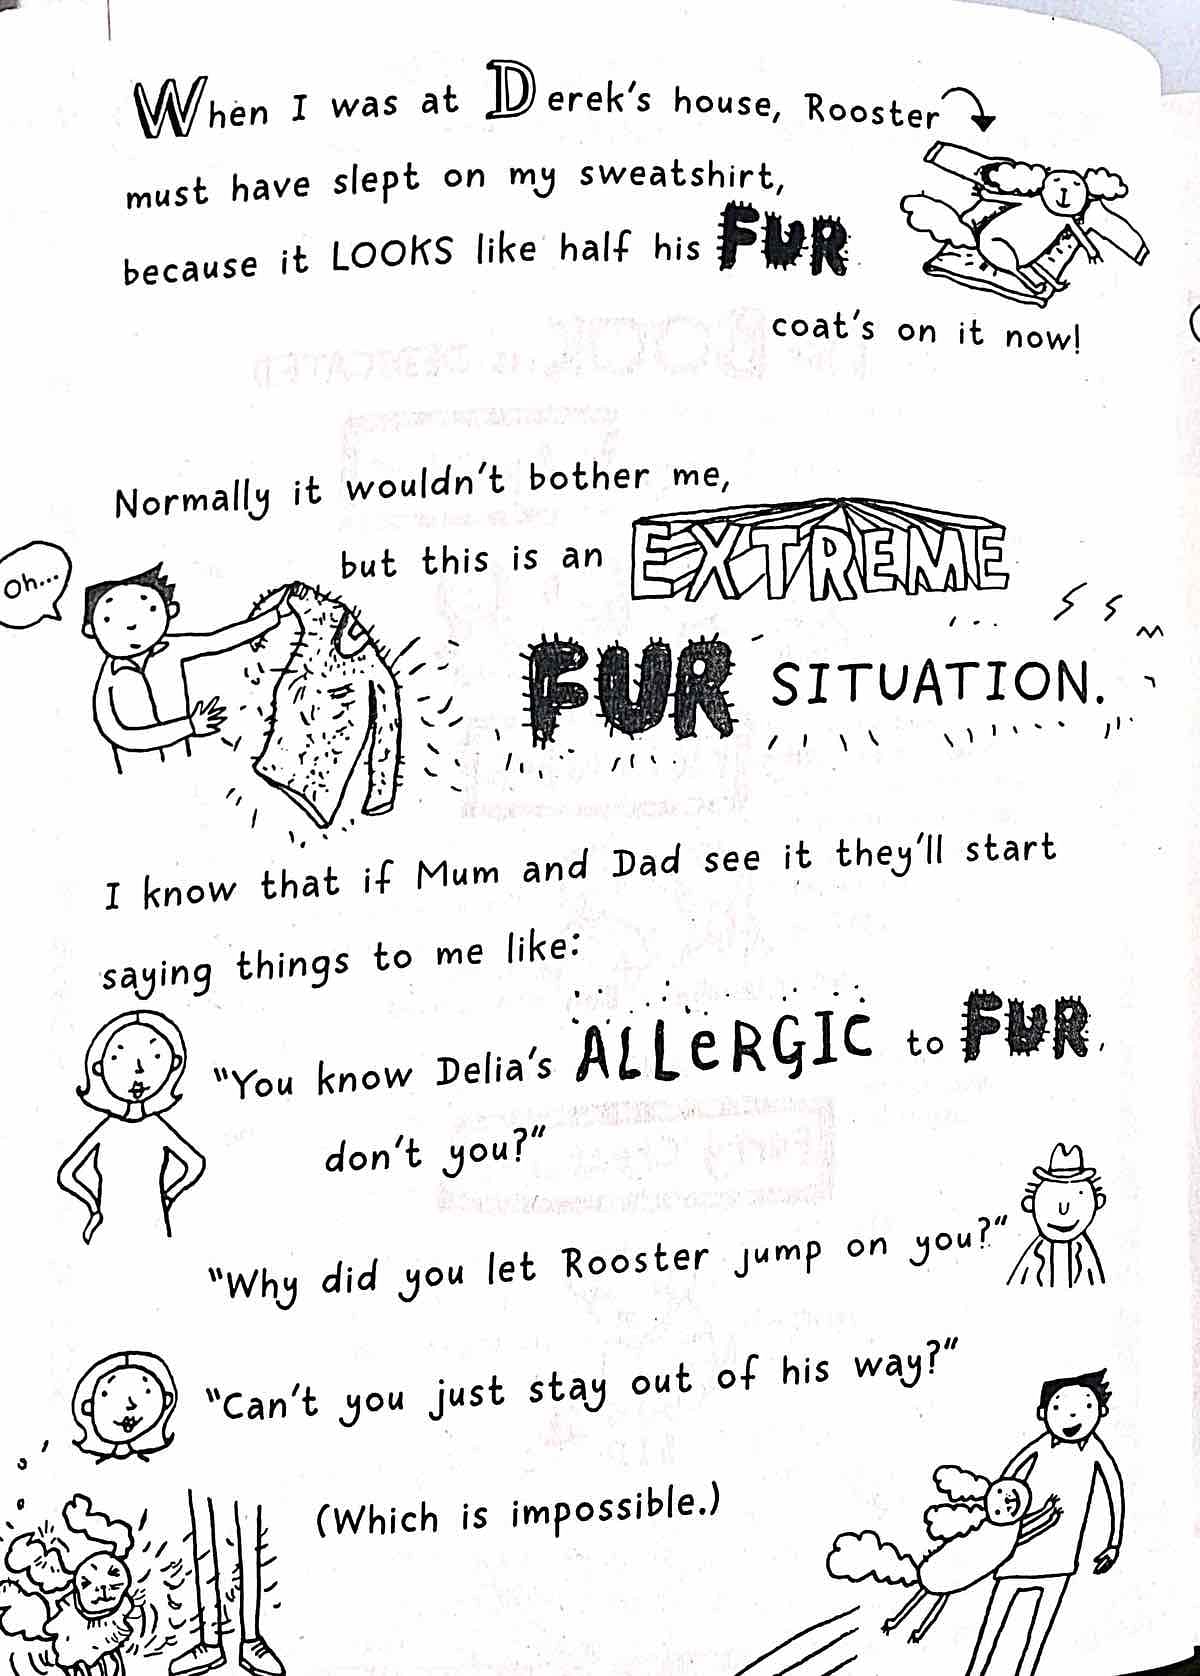 When I was at Derek's house, Rooster
must have slept on my sweatshirt,
because it LOOKS like half his FUR
coat's on it now!
Normally it wouldn't bother me,
but this is an EXTREME
Oh...
FUR SITUATION.
I know that if Mum and Dad see it they'll start
saying things to me like:
"You know Delia's ALLeRGIC to FUR,
don't you?"
"Why did you let Rooster jump on you?"
"Can't you just stay out of his way?"
(Which is impossible.)